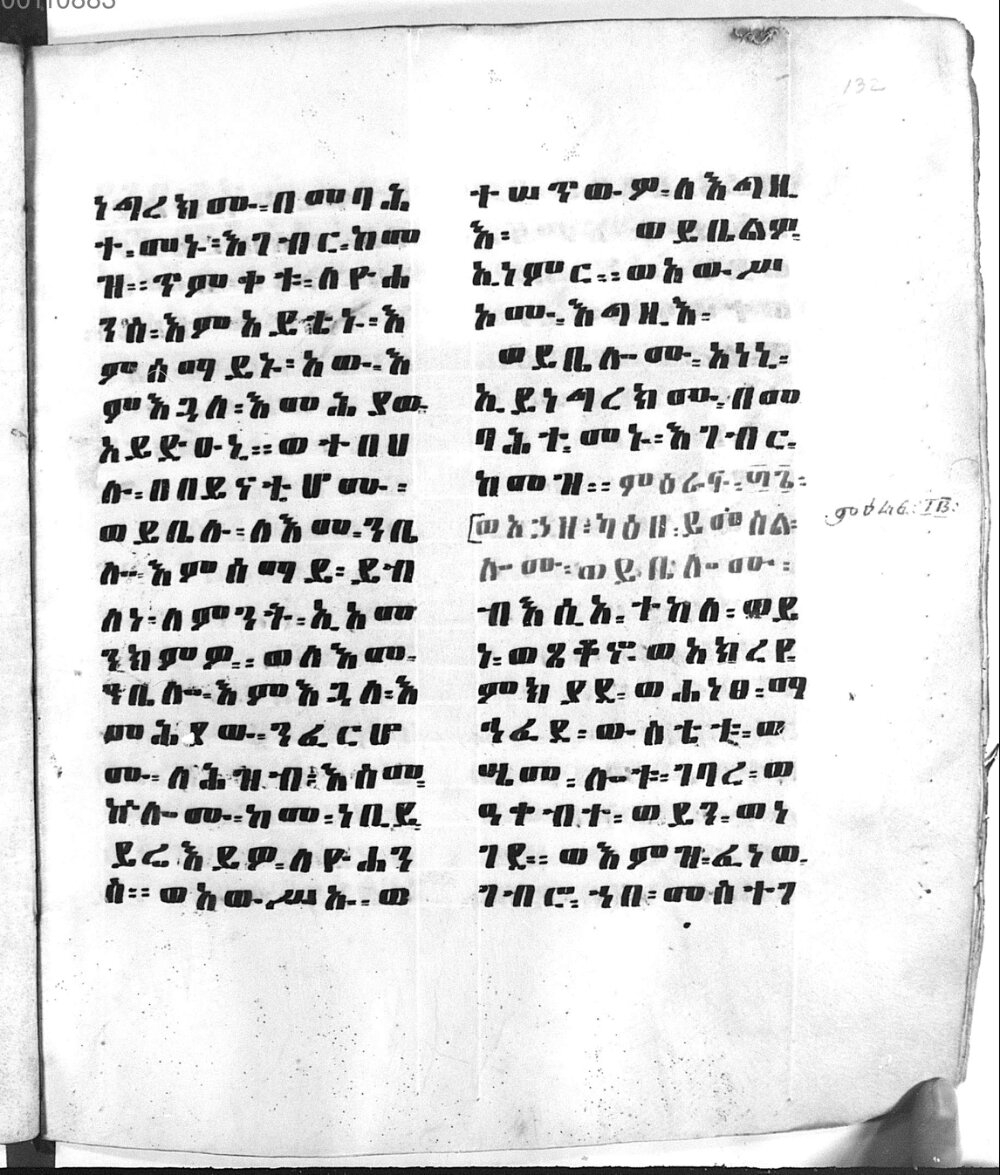 00110883
132
ነጫረክሙ፡በመባሕ
ተ፡መኑ፡እገብር፡ከመ
ዝ።ጥምቀቱ፡ለዮሐ
ንስ፡እምአይቴኑ፡እ
ምሰማይኑ፡አው፡እ
ምእጓለ፡እመሕያው፡
አይድዑኒ።ወተበሀ
ሉ፡በበይናቲሆሙ፡
ወይቤሉ፡ለእመ፡ንቤ
ሉ፡እምሰማይ፡ይብ
ለነ፡ለምንት፡ኢአመ
ንክምዎ፡ወለእመ፡
ንቤሎ፡እምእጓለ፡እ
መሕያው፡ንፈርሆ
ሙ፡ለሕዝብ፡እስመ፡
ኵሎሙ፡ከመ፡ነቢይ፡
ይሬእይዎ፡ለዮሐን
ስ።ወአውሥኡ፡ወ
ተሠጥውዎ፡ለእግዚ
እ፡ ወይቤልዎ፡
ኢነምር።ወአውሥ
አሙ፡እግዚእ፡
ወይቤሎሙ፡አነኒ፡
ኢይነግረክሙ፡በመ
ባሕተ፡መኑ፡እገብር፡
ከመዝ።ምዕራፍ፡፴፫፡
ወአኃዘ፡ካዕበ፡ይመስል፡
ሎሙ፡ወይቤሎሙ፡
ብእሲአ፡ተከለ፡ወይ
ነ፡ወጼቆኖ፡ወአክረየ
ምክያደ፡ወሐነፀ፡ማ
ኅፈደ፡ውስቴቱ፡ወ
ሤመ፡ሎቱ፡ገባረ፡ወ
ዓተብተ፡ወይን፡ወነ
ገደ።ወእምዝ፡ፈነወ፡
ገብሮ፡ኀበ፡መስተገ
ምዕራፍ፡፲፪፡